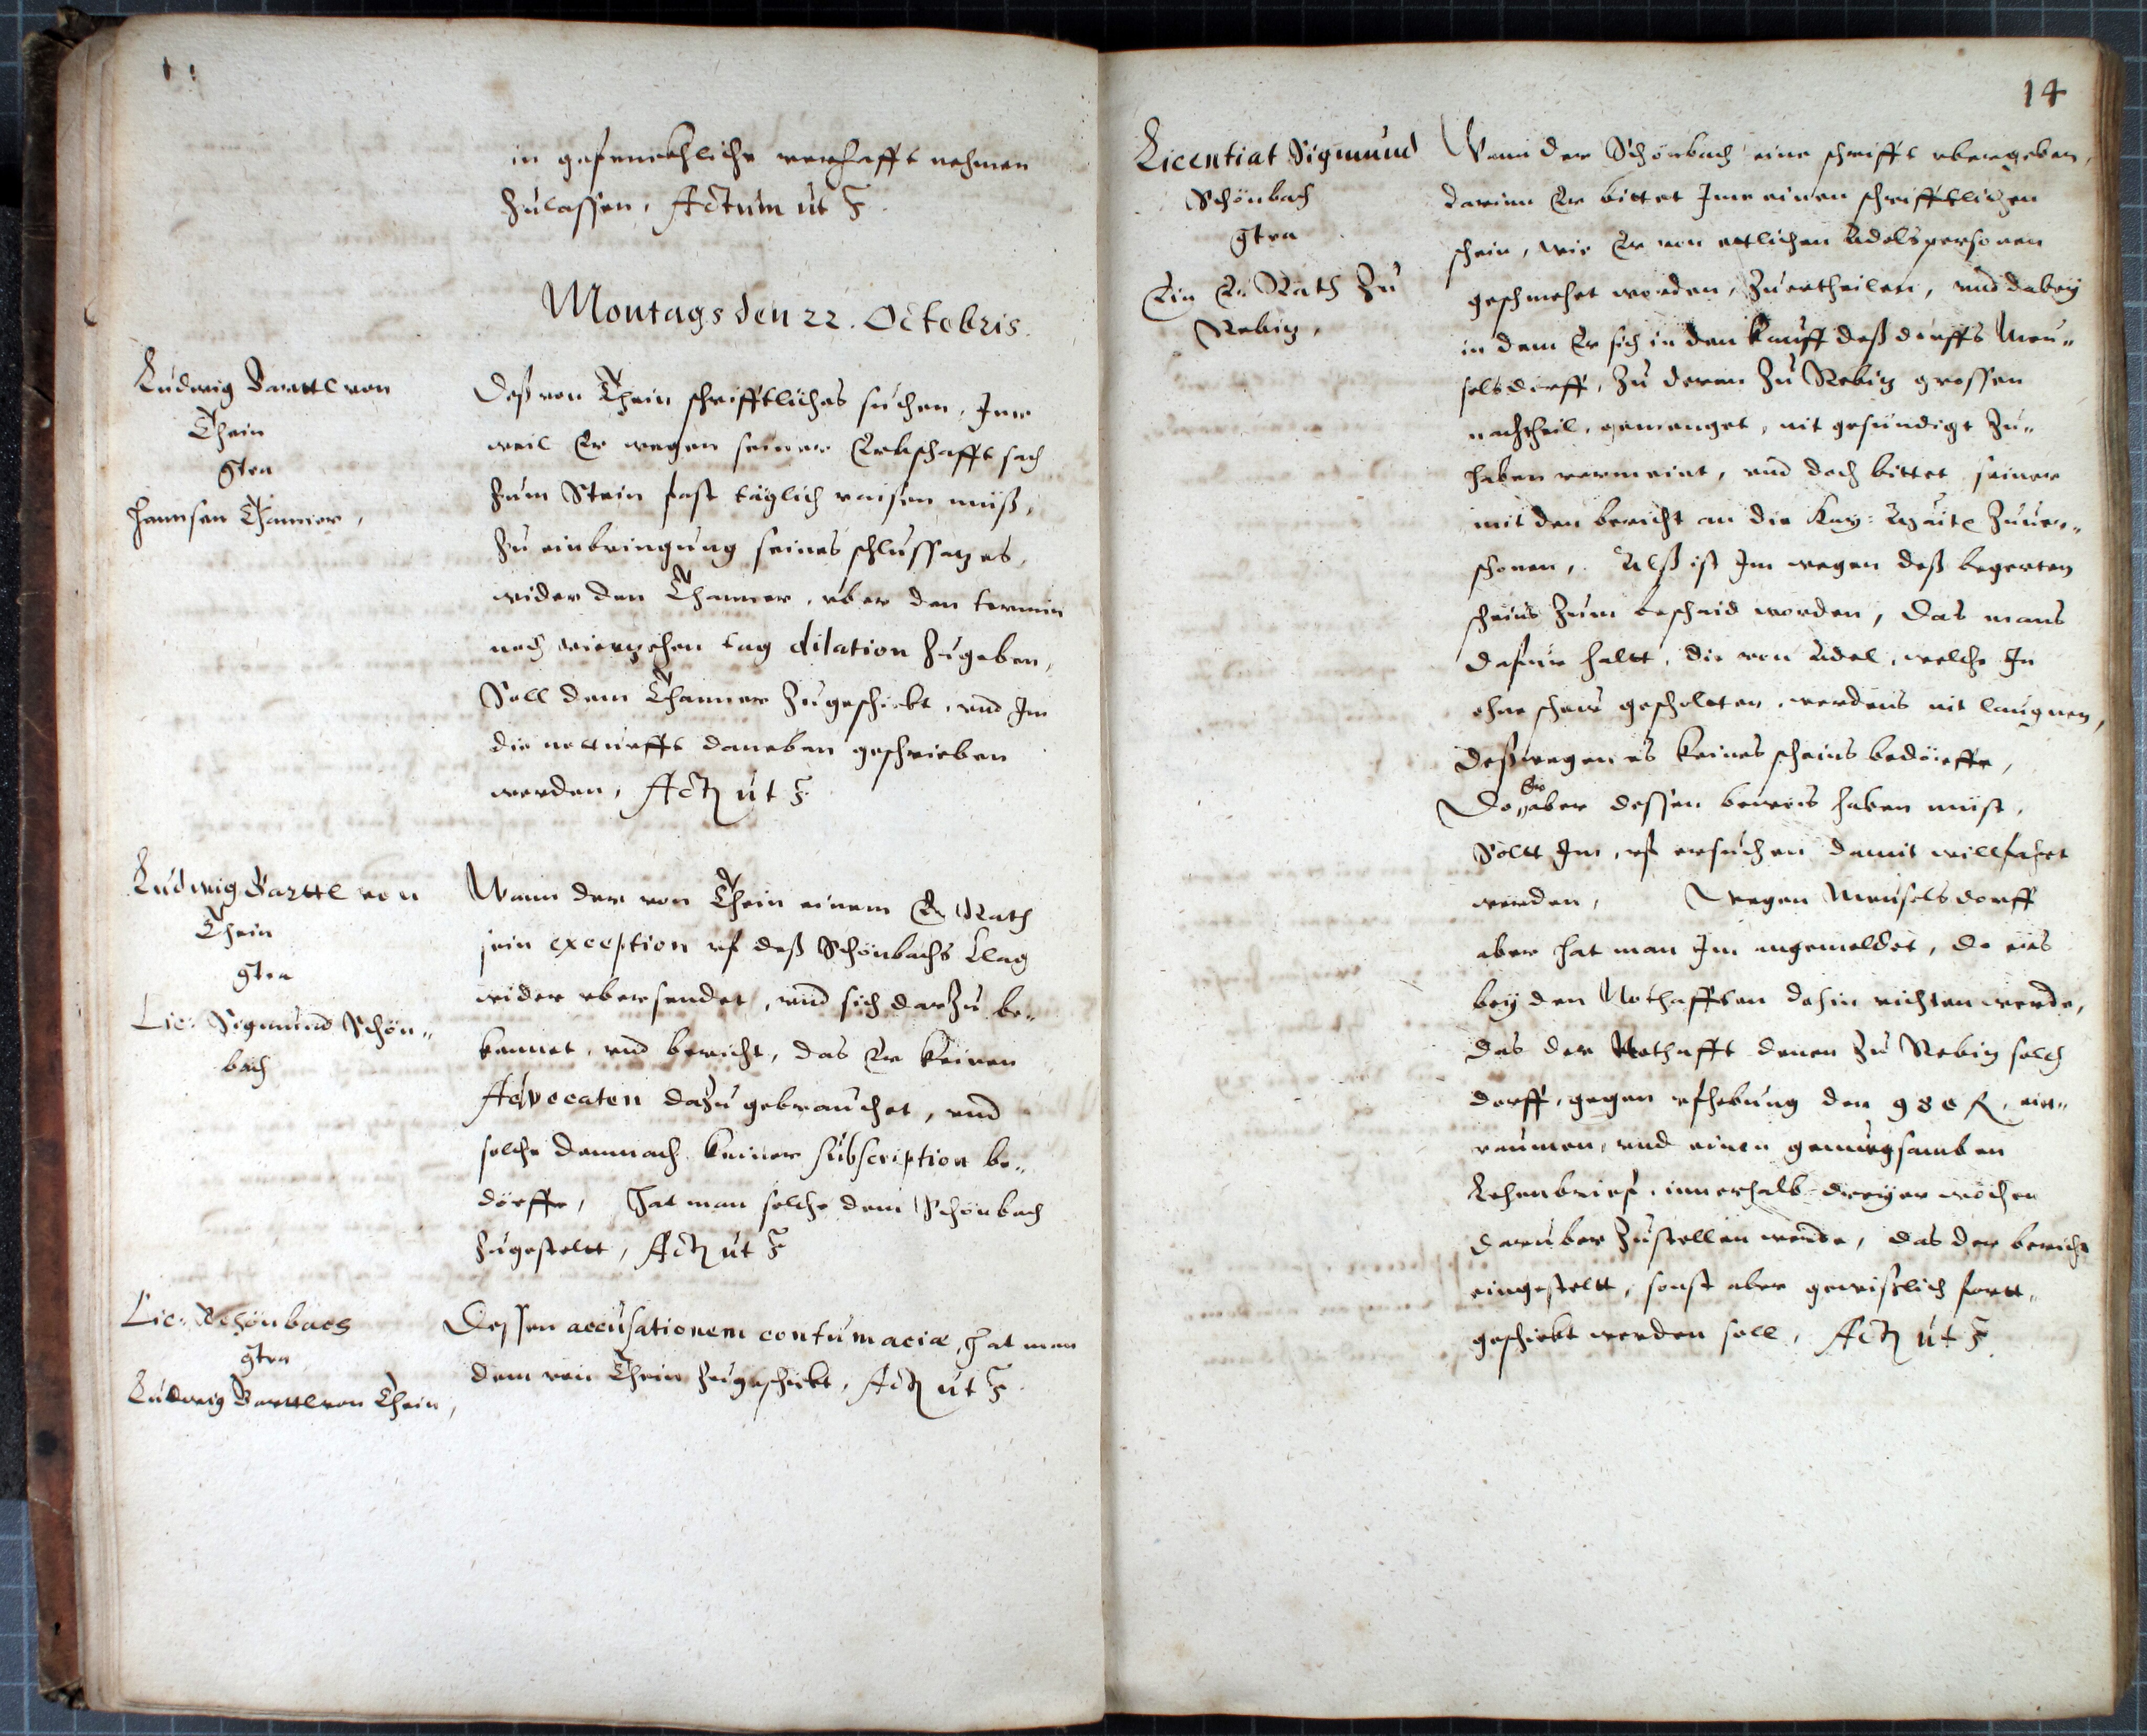 in gefenckhliche verhafft nehmen
Zulassen, Actum ut s.
Montags den 22. Octobris.
Ludwig Barttl von
Thein
gtra
Hannsen Thanner,
Deß von Thein schrifftliches suchen, Ime
weil Er wegen seiner Erbschafft sach
Zum Stein fast täglich raisen muß,
Zu einbringung seines schlussatzes,
wider den Thanner, uber den termin
noch vierzehen tag dilation Zugeben,
Soll dem Thanner Zugeschickt, und Im
die notturfft daneben geschrieben
werden, Actum ut s.
Ludwig Barttl von
Thein
gtra
Lic: Sigmund Schön„
bach
Wann der von Thein einem E. Rath
sein exception uf deß Schönbachs Clag
wider ubersendet, und sich darzu be„
kennet, und bericht, das Er keinen
Advocaten dazu gebrauchet, und
solche demnach keiner subscription be„
dörffe, Hat man solche dem Schönbach
Zugestelt, Actum ut s.
Lic: Schönbach
gtra
Ludwig Barttl von Thein,
Dessen accusationem contumaciæ, hat man
dem von Thein Zugeschickt, Actum ut s.
14
Licentiat Sigmund
Schönbach
gtra
Ein E. Rath Zu
Rebitz,
Wann der Schönbach eine schrifft ubergeben,
darinn Er bittet Ime einen schrifftlichen
schein, wie Er von ettlichen Adelspersonen
geschmehet worden, Zuertheilen, und dabey
in dem Er sich in den kauff deß dorffs Meu„
selsdorff, Zu deren Zu Rebitz grossen
nachtheil, gemenget, nit gesündigt Zu„
haben vermeint, und doch bittet seiner
mit den bericht an die Kay: Maitt Zuver„
schonen, Alß ist Im wegen deß begerten
scheins Zum beschaid worden, Das mans
dafur haltt, die von Adel, welche In
ohne scheu gescholten, werdens nit laugnen,
deßwegen es keines scheins bedörffe,
Do Er aber dessen beweis haben müst,
Soltt Im, uf ersuchen damit willfahret
werden, Wegen Meuselsdorff
aber hat man Im angemeldet, do ers
bey den Nothafften dahin richten werde,
das der Nothafft denen Zu Rebitz solch
dorff, gegen ufhebung den 980 R, ein„
raumen, und einen genuegsamben
Lehenbrief, innerhalb dreyer wochen
daruber Zustellen werde, das der bericht
eingestellt, sonst aber gewißlich fortt„
geschickt werden soll, Actum ut s.